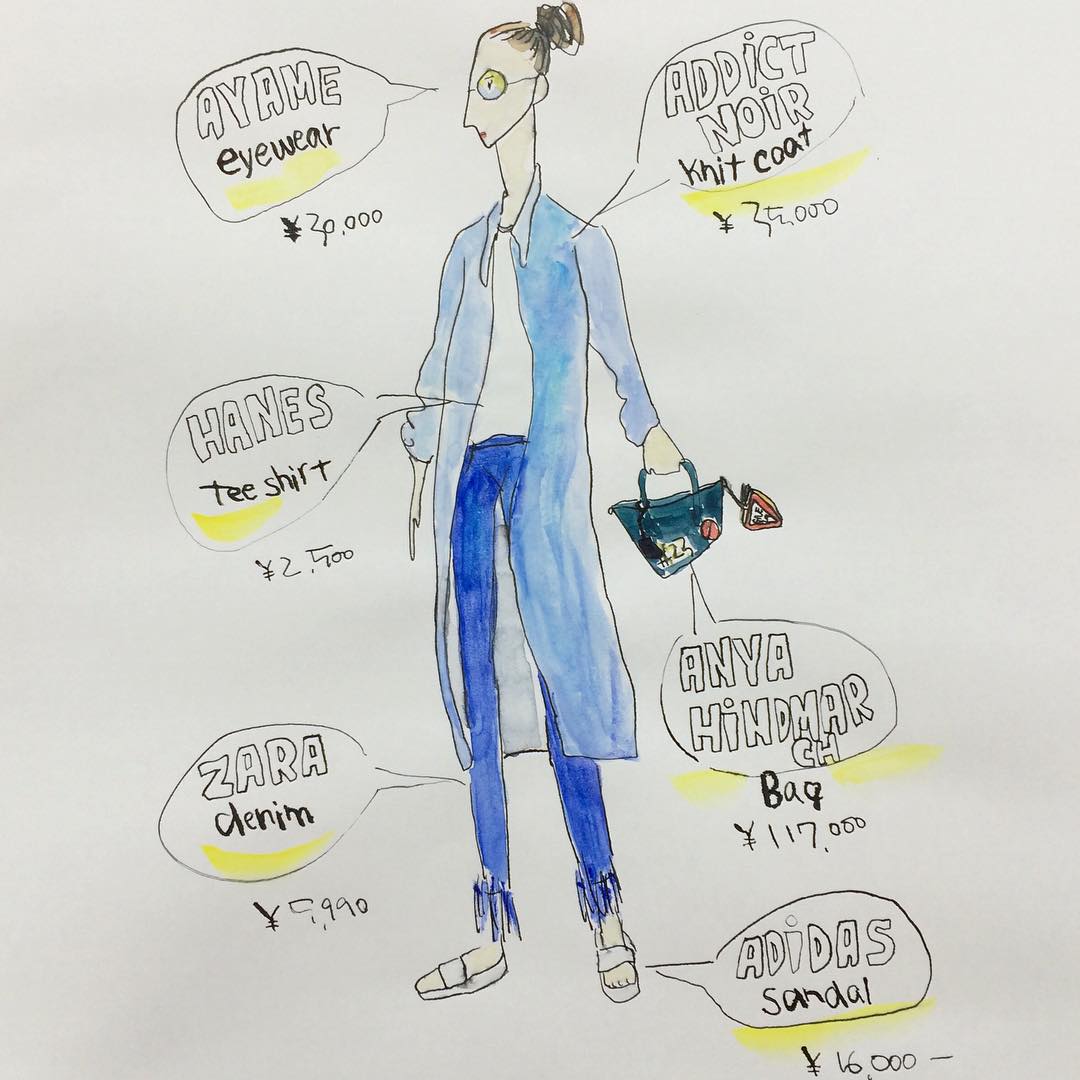 AYAME
eyewear
¥30,000
ADDiCT
NOiR
knit coat
¥35,000
HANES
tee shirt
¥2,500
ANYA
HiNDMAR
CH
Bag
¥117,000
ZARA
denim
¥5,990
ADiDAS
sandal
¥16,000 —